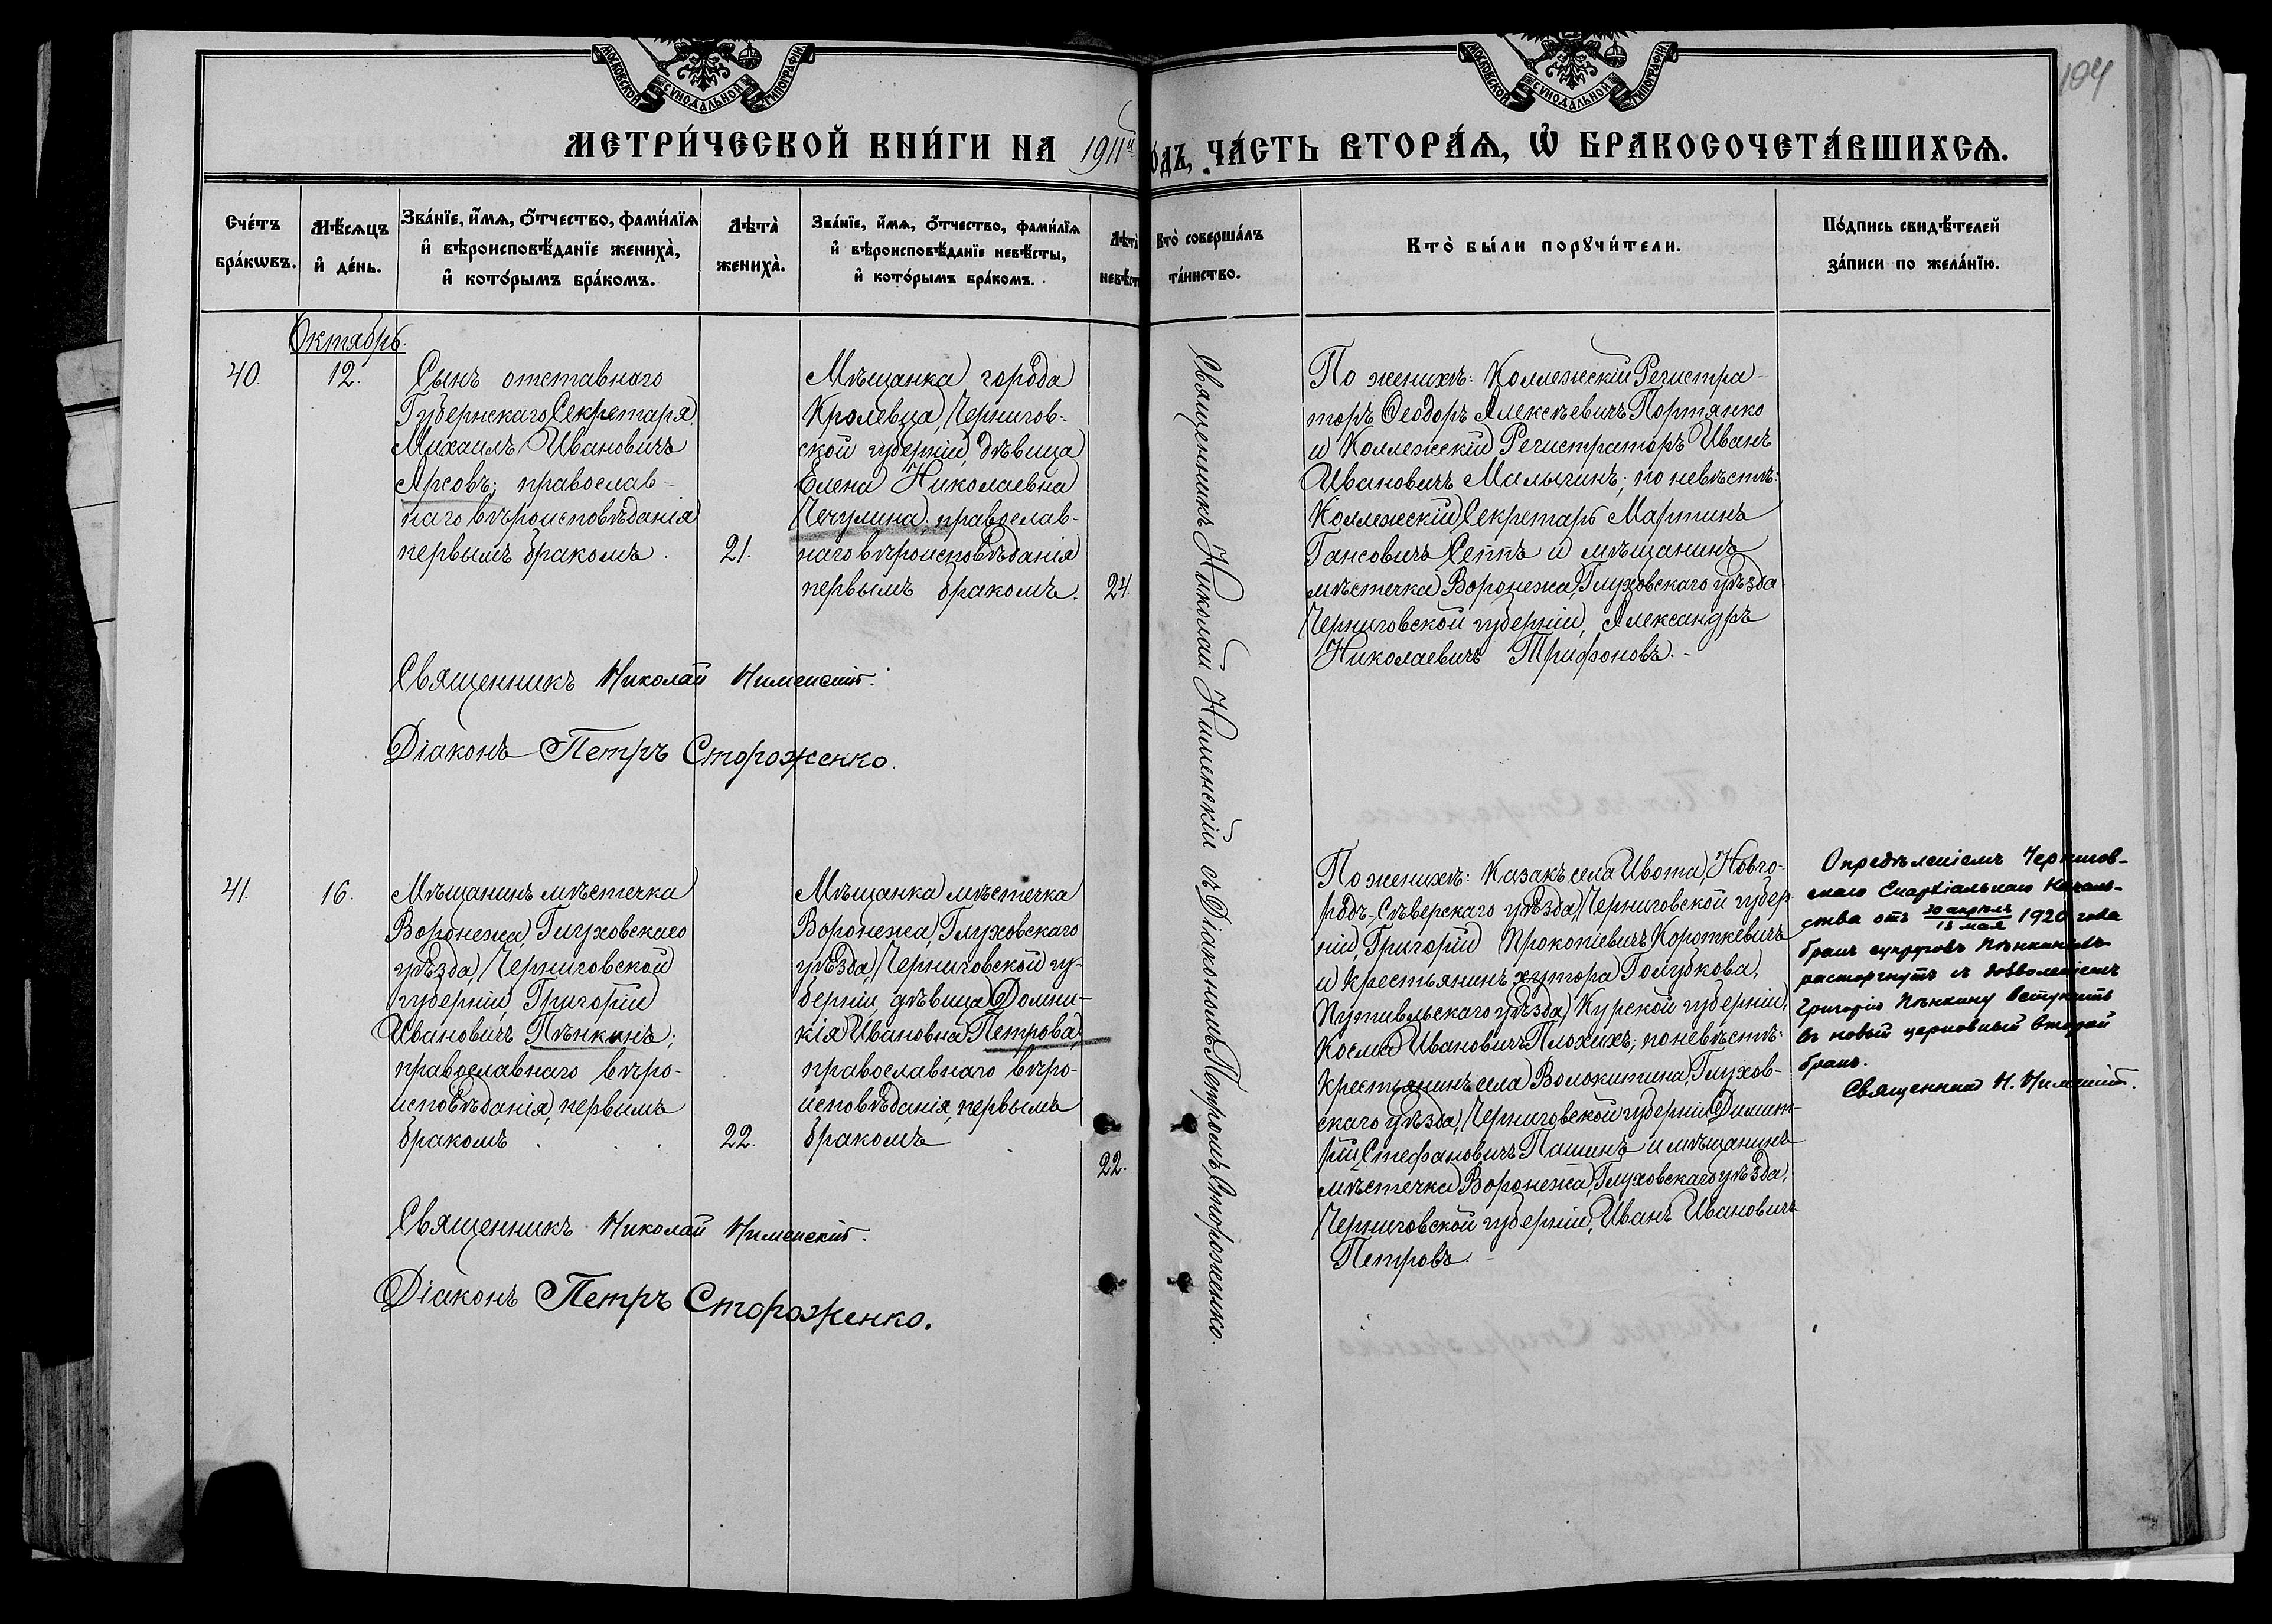 МОСКОВСКОЙ СУНОДАЛЬНОЙ ТИПОГРАФІИ
МОСКОВСКОЙ СУНОДАЛЬНОЙ ТИПОГРАФІИ
104
МЕТРИ́ЧЕСКОЙ КНИ́ГИ НА 1911й
о́дъ, ЧА́СТЬ ВТОРА́Ѧ, Ѡ БРАКОСОЧЕТА́ВШИХСѦ.
Сче́тъ
бра́кѡвъ.
Мѣ́сѧцъ
и҆ де́нь.
Зва́нїе, и҆́мѧ, ѻ҆́тчество, фами́лїѧ
и҆ вѣроисповѣ́данїе жениха̀,
и҆ кото́рымъ бра́комъ.
Лѣта̀
жениха̀.
Зва́нїе, и҆́мѧ, ѻ҆́тчество, фами́лїѧ
и҆ вѣроисповѣ́данїе невѣ́сты,
и҆ кото́рымъ бра́комъ.
Лѣта̀
невѣ́ст
Кто̀ соверша́лъ
та́инство.
Кто̀ бы́ли порꙋчи́тели.
По́дпись свидѣ́телей
за́писи по жела́нїю.
Октябрь.
40.
12.
Сынъ отставного
Губернскаго Секретаря
Михаилъ Ивановичъ
Аресвъ; православ-
наго вѣроисповѣданія
первымъ бракомъ.
21.
Мѣщанка города
Кролевца, Чернигов-
ской губерніи, дѣвица
Елена Николаевна
Печулина; православ-
наго вѣроисповѣданія
первымъ бракомъ.
24.
Священникъ Николай Нименскій съ Діакономъ Петромъ Стороженко.
По женихѣ: Коллежскій Регистра-
торъ Ѳеодоръ Алексѣевичъ Портянко
и Коллежскій Регистраторъ Иванъ
Ивановичъ Малыгинъ; по невѣстѣ:
Коллежскій Секретарь Мартинъ
Гансовичъ Сеппъ и мѣщанинъ
мѣстечка Воронежа, Глуховскаго уѣзда
Черниговской губерніи, Александръ
Николаевичъ Трифоновъ.-
Священникъ Николай Нименскій.
Діаконъ Петръ Стороженко.
41.
16.
Мѣщанинъ мѣстечка
Воронежа, Глуховскаго
уѣзда, Черниговской
губерніи, Григорій
Ивановичъ Пѣнкинъ;
православнаго вѣро-
исповѣданія, первымъ
бракомъ
22.
Мѣщанка мѣстечка
Воронежа, Глуховскаго
уѣзда, Черниговской гу-
берніи, дѣвица Домни-
кія Ивановна Петрова;
православнаго вѣро-
исповѣданія, первымъ
бракомъ
22.
По женихѣ: Казакъ села Ивота, Новго-
родъ-Сѣверскаго уѣзда, Черниговской губер
ніи, Григорій Прокопіевичъ Короткевичъ
и крестьянинъ хутора Голубкова,
Путивльскаго уѣзда, Курской губерніи,
Косма Ивановичъ Плохихъ; по невѣстѣ:
крестьянинъ села Волокитина, Глухов-
скаго уѣзда, Черниговской губерніи Димит-
рій Стефановичъ Пашинъ и мѣщанинъ
мѣстечка Воронежа, Глуховскаго уѣзда,
Черниговской губерніи, Иванъ Ивановичъ
Петровъ.-
Опредѣленіемъ Чернигов-
скаго Епархіальнаго Началь-
ства отъ 30 апрѣля/13 мая 1920 года
бракъ супруговъ Пѣнкиныхъ
расторгнутъ съ дозволеніемъ
Григорію Пѣнкину вступить
въ новый церковный второй
бракъ.
Священникъ Н. Нименскій.
Священникъ Николай Нименскій.
Діаконъ Петръ Стороженко.